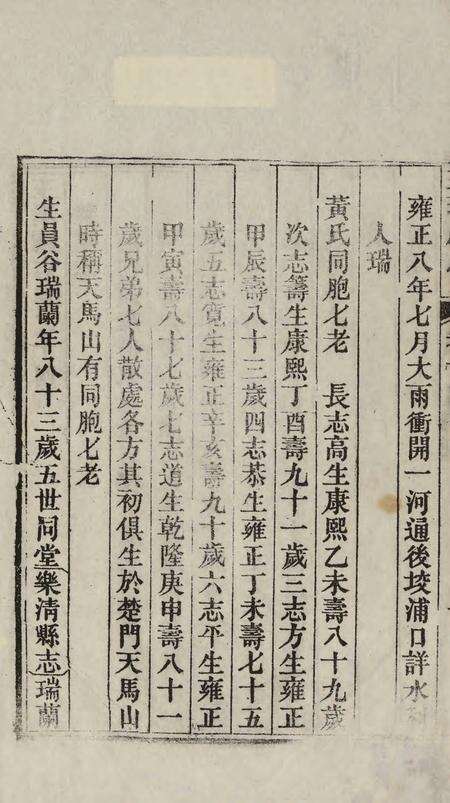 雍正八年七月大雨衝開一河通後垵浦口詳水利
人瑞
黃氏同胞七老 長志高生康熙乙未壽八十九歲
次志籌生康熙丁酉壽九十一歲三志方生雍正
甲辰壽八十三歲四志恭生雍正丁未壽七十五
歲五志寬生雍正辛亥壽九十歲六志平生雍正
甲寅壽八十七歲七志道生乾隆庚申壽八十一
歲兄弟七人散處各方其初俱生於楚門天馬山
時稱天馬山有同胞七老
生員谷瑞蘭年八十三歲五世同堂樂清縣志瑞蘭